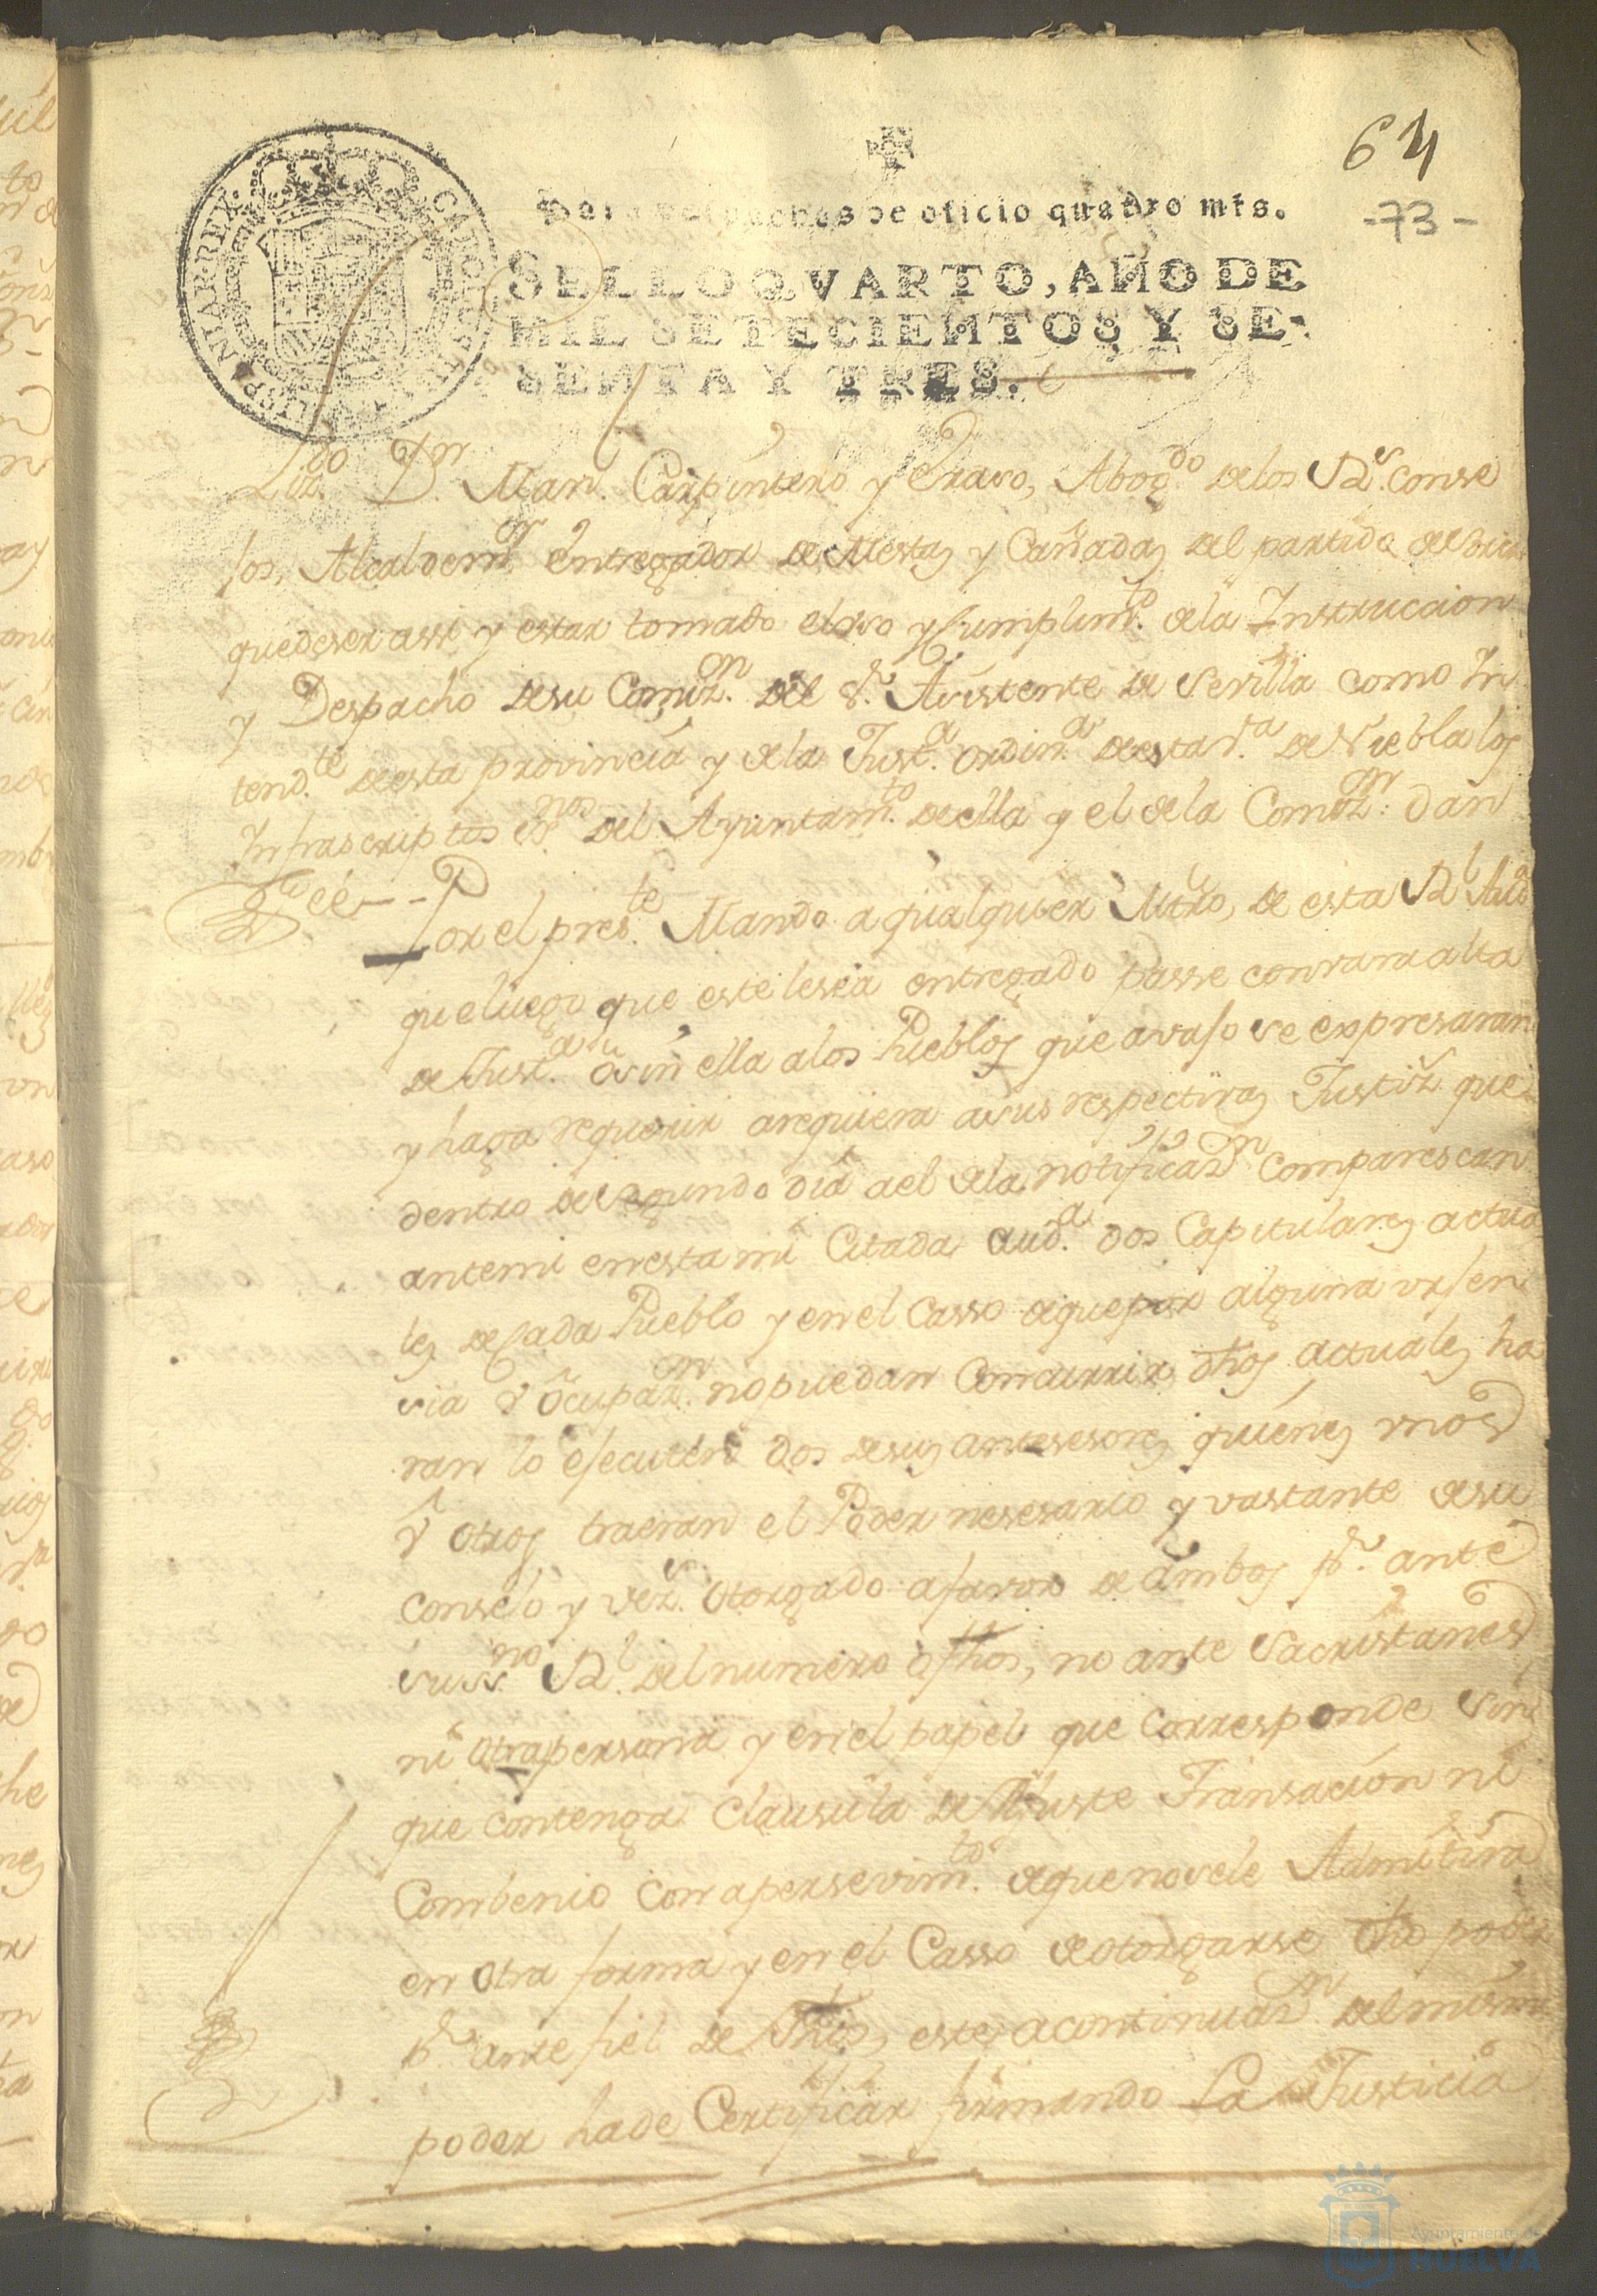 64
-73-
Para despachos de oficio quatro mrs.
SELLO QVARTO, AÑO DE
MIL SETECIENTOS Y SE-
SENTA Y TRES.
CAROLUS HISPANIAR. REX.
Lizdo. Dn. Man. Carpintero y Bravo, Abogdo. delos Rs. Conse
jos, Alcaldemor. entregador de Mestas y Cañadas del partido de
quedeser assi y estar tomado eluso y Cumplimto. dela Instruccion
y Despacho desu Comizn. del Sr. Asistente de Sevilla como In
tendte. desta provincia y dela Justa. ordina. desta va. de Niebla los
Infrascriptos Ssnos. del Ayuntamto. deella y el dela Comizn. dan
Fee-- Por el preste. Mando a qualquier Mtro, de esta Rl. Auda.
queluego que este lesea entregado passe convaraalta
de Justa. ó sin ella alos Pueblos que avajo se expresaran
y haga requerir arequiera asus respectivas Justiz. que
dentro del segundo dia ael dela notificazn. comparescan
antemi enesta mi Citada auda. dos Capitulares actua
les decada Pueblo y enel Casso deque por alguna ursen
sia ú ôcupazn. nopuedan Concurrir dhos actuales ha
ran lo ejecuten dos desus antesesores quienes unos
ú otros traeran el Poder nesesario y vastante desu
consejo y vez. otorgado afavor de ambos pr. ante
susSno. Rl. delnumero ó fhos, no ante Sacristanes
ni otrapersona y enel papel que corresponde sin
que contenga Clausula de Ajuste Transacion ni
Combenio con apersevimto. deque nosele Admitira
en otra forma y en el Casso deotorgarse dho poder
pr. ante fiel de fhos, este acontinuazn. del mismo
poder hade Certificar firmando La Justicia
Ayuntamiento de
HUELVA